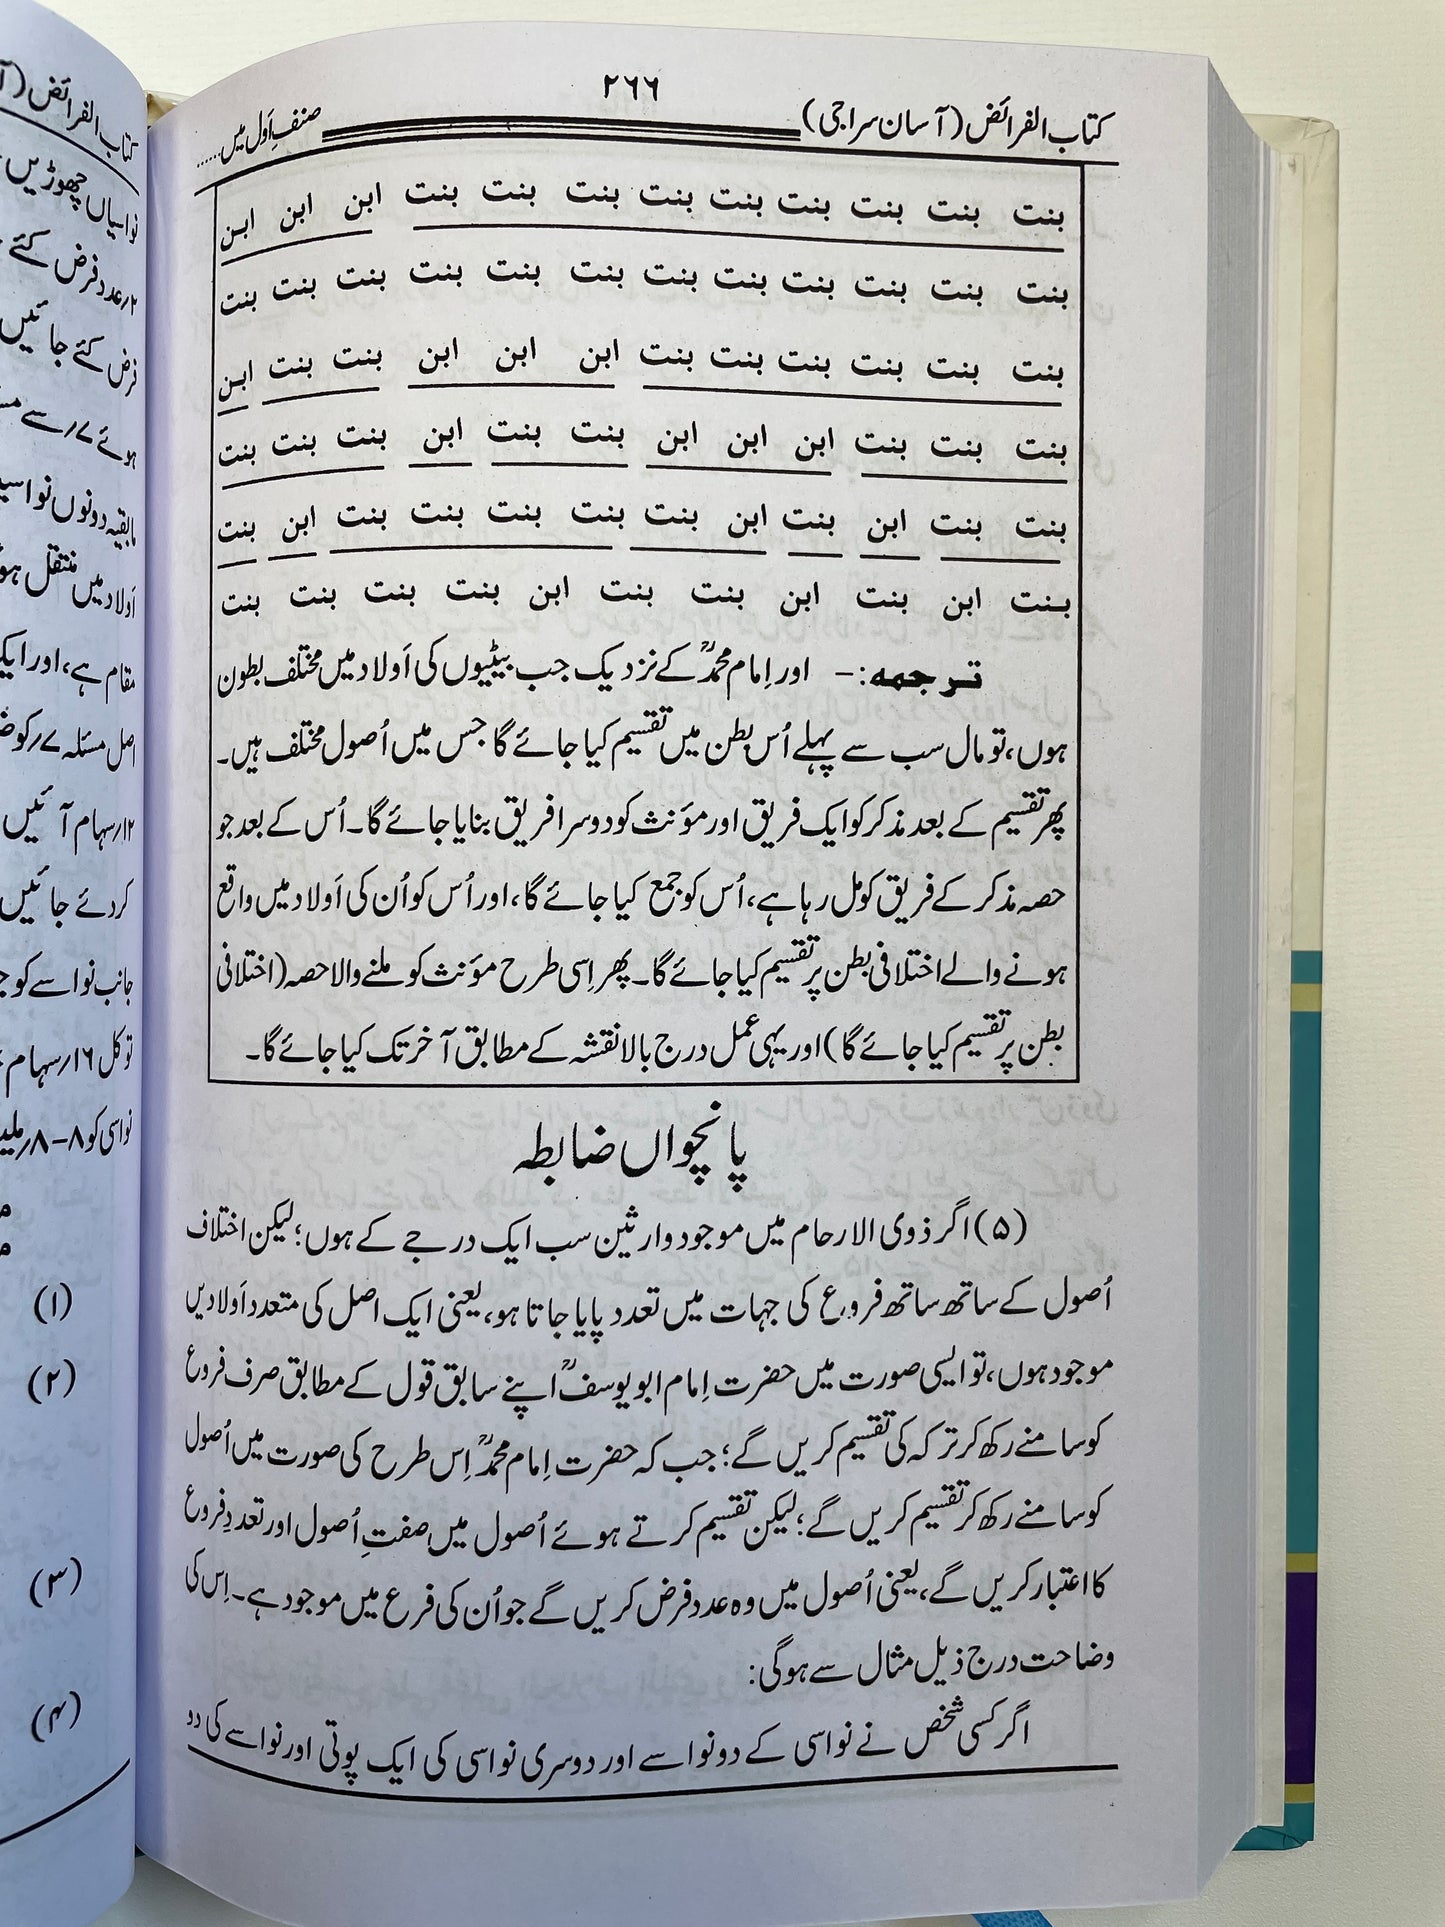 ۲۶۶
کتاب الفرائض (آسان سراجی) صنفِ اَول میں......
بنت بنت بنت بنت بنت بنت بنت بنت بنت ابن ابن ابن
بنت بنت بنت بنت بنت بنت بنت بنت بنت بنت بنت بنت
بنت بنت بنت بنت بنت بنت ابن ابن ابن بنت بنت ابن
بنت بنت بنت ابن ابن ابن بنت بنت ابن بنت بنت بنت
بنت بنت ابن بنت ابن بنت بنت بنت بنت بنت ابن بنت
بنت ابن بنت ابن بنت بنت ابن بنت بنت بنت بنت
ترجمہ:- اور اِمام محمدؒ کے نزدیک جب بیٹیوں کی اَولاد میں مختلف بطون
ہوں، تو مال سب سے پہلے اُس بطن میں تقسیم کیا جائے گا جس میں اُصول مختلف ہیں۔
پھر تقسیم کے بعد مذکر کو ایک فریق اور مؤنث کو دوسرا فریق بنایا جائے گا۔ اُس کے بعد جو
حصہ مذکر کے فریق کو مل رہا ہے، اُس کو جمع کیا جائے گا، اور اُس کو اُن کی اَولاد میں واقع
ہونے والے اختلافی بطن پر تقسیم کیا جائے گا۔ پھر اِسی طرح مؤنث کو ملنے والا حصہ (اختلافی
بطن پر تقسیم کیا جائے گا) اور یہی عمل درج بالا نقشہ کے مطابق آخر تک کیا جائے گا۔
پانچواں ضابطہ
(۵) اگر ذوی الارحام میں موجود وارثین سب ایک درجے کے ہوں؛ لیکن اختلاف
اُصول کے ساتھ ساتھ فروع کی جہات میں تعدد پایا جاتا ہو، یعنی ایک اصل کی متعدد اَولادیں
موجود ہوں، تو ایسی صورت میں حضرت اِمام ابو یوسفؒ اپنے سابق قول کے مطابق صرف فروع
کو سامنے رکھ کر ترکہ کی تقسیم کریں گے؛ جب کہ حضرت اِمام محمدؒ اِس طرح کی صورت میں اُصول
کو سامنے رکھ کر تقسیم کریں گے؛ لیکن تقسیم کرتے ہوئے اُصول میں صفتِ اُصول اور تعددِ فروع
کا اعتبار کریں گے، یعنی اُصول میں وہ عدد فرض کریں گے جو اُن کی فرع میں موجود ہے۔ اِس کی
وضاحت درج ذیل مثال سے ہوگی:
اگر کسی شخص نے نواسی کے دو نواسے اور دوسری نواسی کی ایک پوتی اور نواسے کی دو
کتاب الفرائض (آ
نواسیاں چھوڑیں
۲؍عدد فرض کئے
فرض کئے جائیں
ہوئے ۷؍سے
مابقیہ دونوں
اَولاد میں منتقل
مقام ہے، اور
اصل مسئلہ ۷؍کو
۱۲؍سہام آئیں
کردئے جائیں
جانب نواسے کو
تو کل ۱۶؍سہام
نواسی کو ۸-۸؍
(۱)
(۲)
(۳)
(۴)